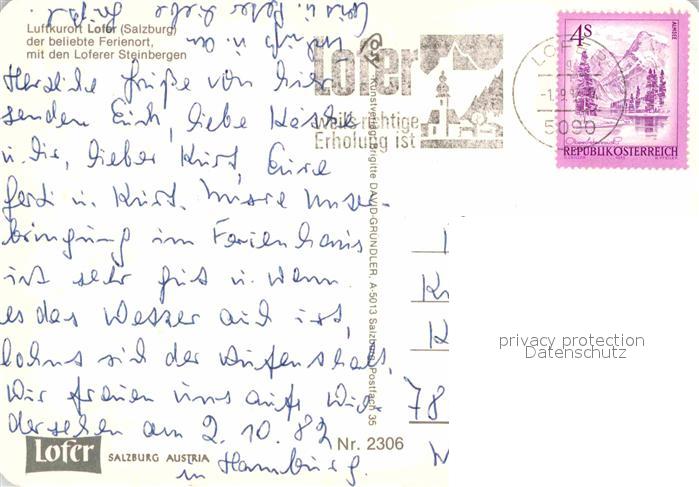 Luftkurort Lofer (Salzburg)
der beliebte Ferienort,
mit den Loferer Steinbergen
Herzliche Grüße von hier
senden Euch, liebe Käthe
u. Dir, lieber Kurt, Eure
Gerti u. Kurt. Unsere Unter-
bringung im Ferienhaus
ist sehr gut u. wenn
es das Wetter auch ist,
lohnt sich der Aufenthalt.
Wir freuen uns aufs Wie-
dersehen am 2.10.82
in Hamburg.
Lofer
SALZBURG AUSTRIA
Nr. 2306
Kunstverlag Brigitte DAVID-GRÜNDLER, A-5013 Salzburg, Postfach 35
Lofer
weil richtige
Erholung ist
LOFER
5090
4S
ALMSEE
REPUBLIK ÖSTERREICH
78
privacy protection
Datenschutz